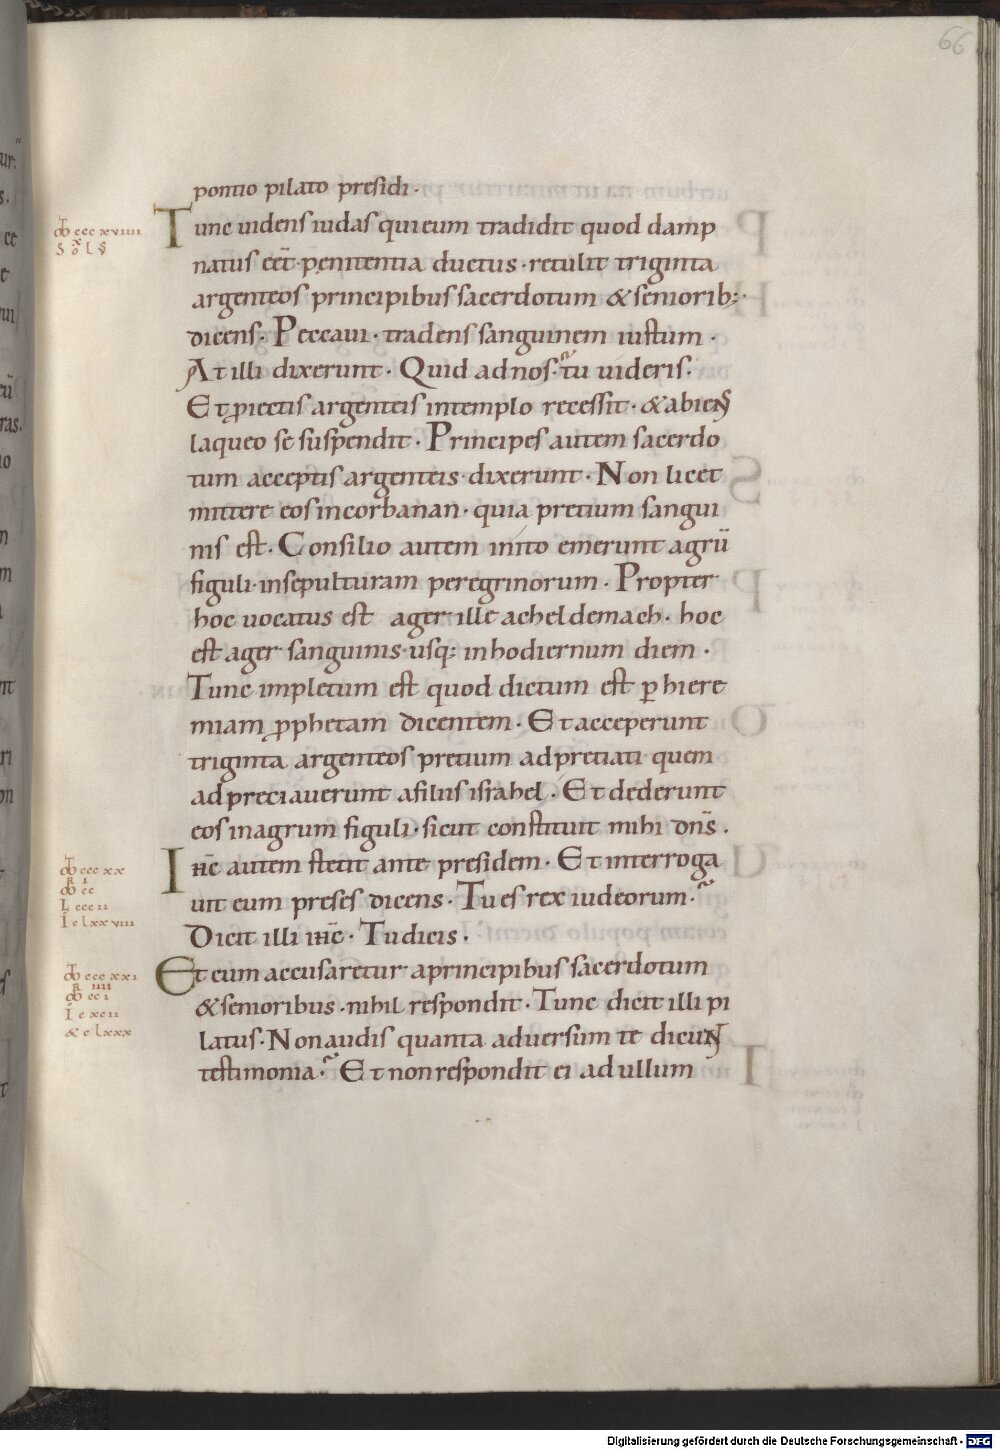 66
pontio pilato presidi ·
Tunc uidens iudas qui eum tradidit quod damp
natus eēt· penitentia ductus · retulit triginta
argenteos principibus sacerdotum & seniorib;·
dicens · Peccaui · tradens sanguinem iustum ·
At illi dixerunt · Quid ad nos· tu uideris ·
Et ꝓiectis argenteis in templo recessit · & abiens
laqueo se suspendit · Principes autem sacerdo
tum acceptis argenteis · dixerunt · Non licet
mittere eos in corbanan · quia pretium sangui
nis est · Consilio autem inito emerunt agrū
figuli· in sepulturam peregrinorum · Propter
hoc uocatus est ager ille acheldemach · hoc
est ager sanguinis· usq; in hodiernum diem ·
Tunc impletum est quod dictum est ꝑ hiere
miam ꝓphetam dicentem · Et acceperunt
triginta argenteos pretium adpretiati quem
adpreciauerunt a filiis israhel · Et dederunt
eos in agrum figuli · sicut constituit mihi dn̄s ·
ccc xx
cc
L ccc ii
Ihc̄ autem stetit ante presidem · Et interroga
uit eum preses dicens · Tu es rex iudeorum ·
Dicit illi ihc̄ · Tu dicis ·
ccc xxi
R iiii
cc i
Et cum accusaretur a principibus sacerdotum
& senioribus · nihil respondit · Tunc dicit illi pi
latus · Non audis quanta aduersum te dicunt
testimonia · Et non respondit ei ad ullum
Digitalisierung gefördert durch die Deutsche Forschungsgemeinschaft - DFG